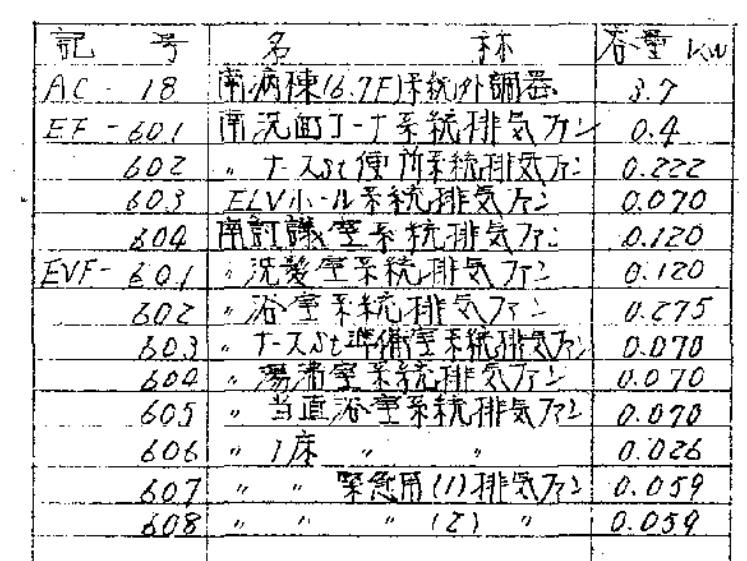 記 号 名 称 容量 KW
AC - 18 南病棟(6.7F)系統外調器 3.7
EF - 601 南洗面コーナ系統排気ファン 0.4
602 〃 ナースSt便所系統排気ファン 0.222
603 ELVホール系統排気ファン 0.070
604 南討議室系統排気ファン 0.120
EVF- 601 〃 洗髪室系統排気ファン 0.120
602 〃 浴室系統排気ファン 0.275
603 〃 ナースSt準備室系統排気ファン 0.070
604 〃 湯沸室系統排気ファン 0.070
605 〃 当直浴室系統排気ファン 0.070
606 〃 1床 〃 〃 0.026
607 〃 〃 緊急用(1)排気ファン 0.059
608 〃 〃 〃 (2) 〃 0.059